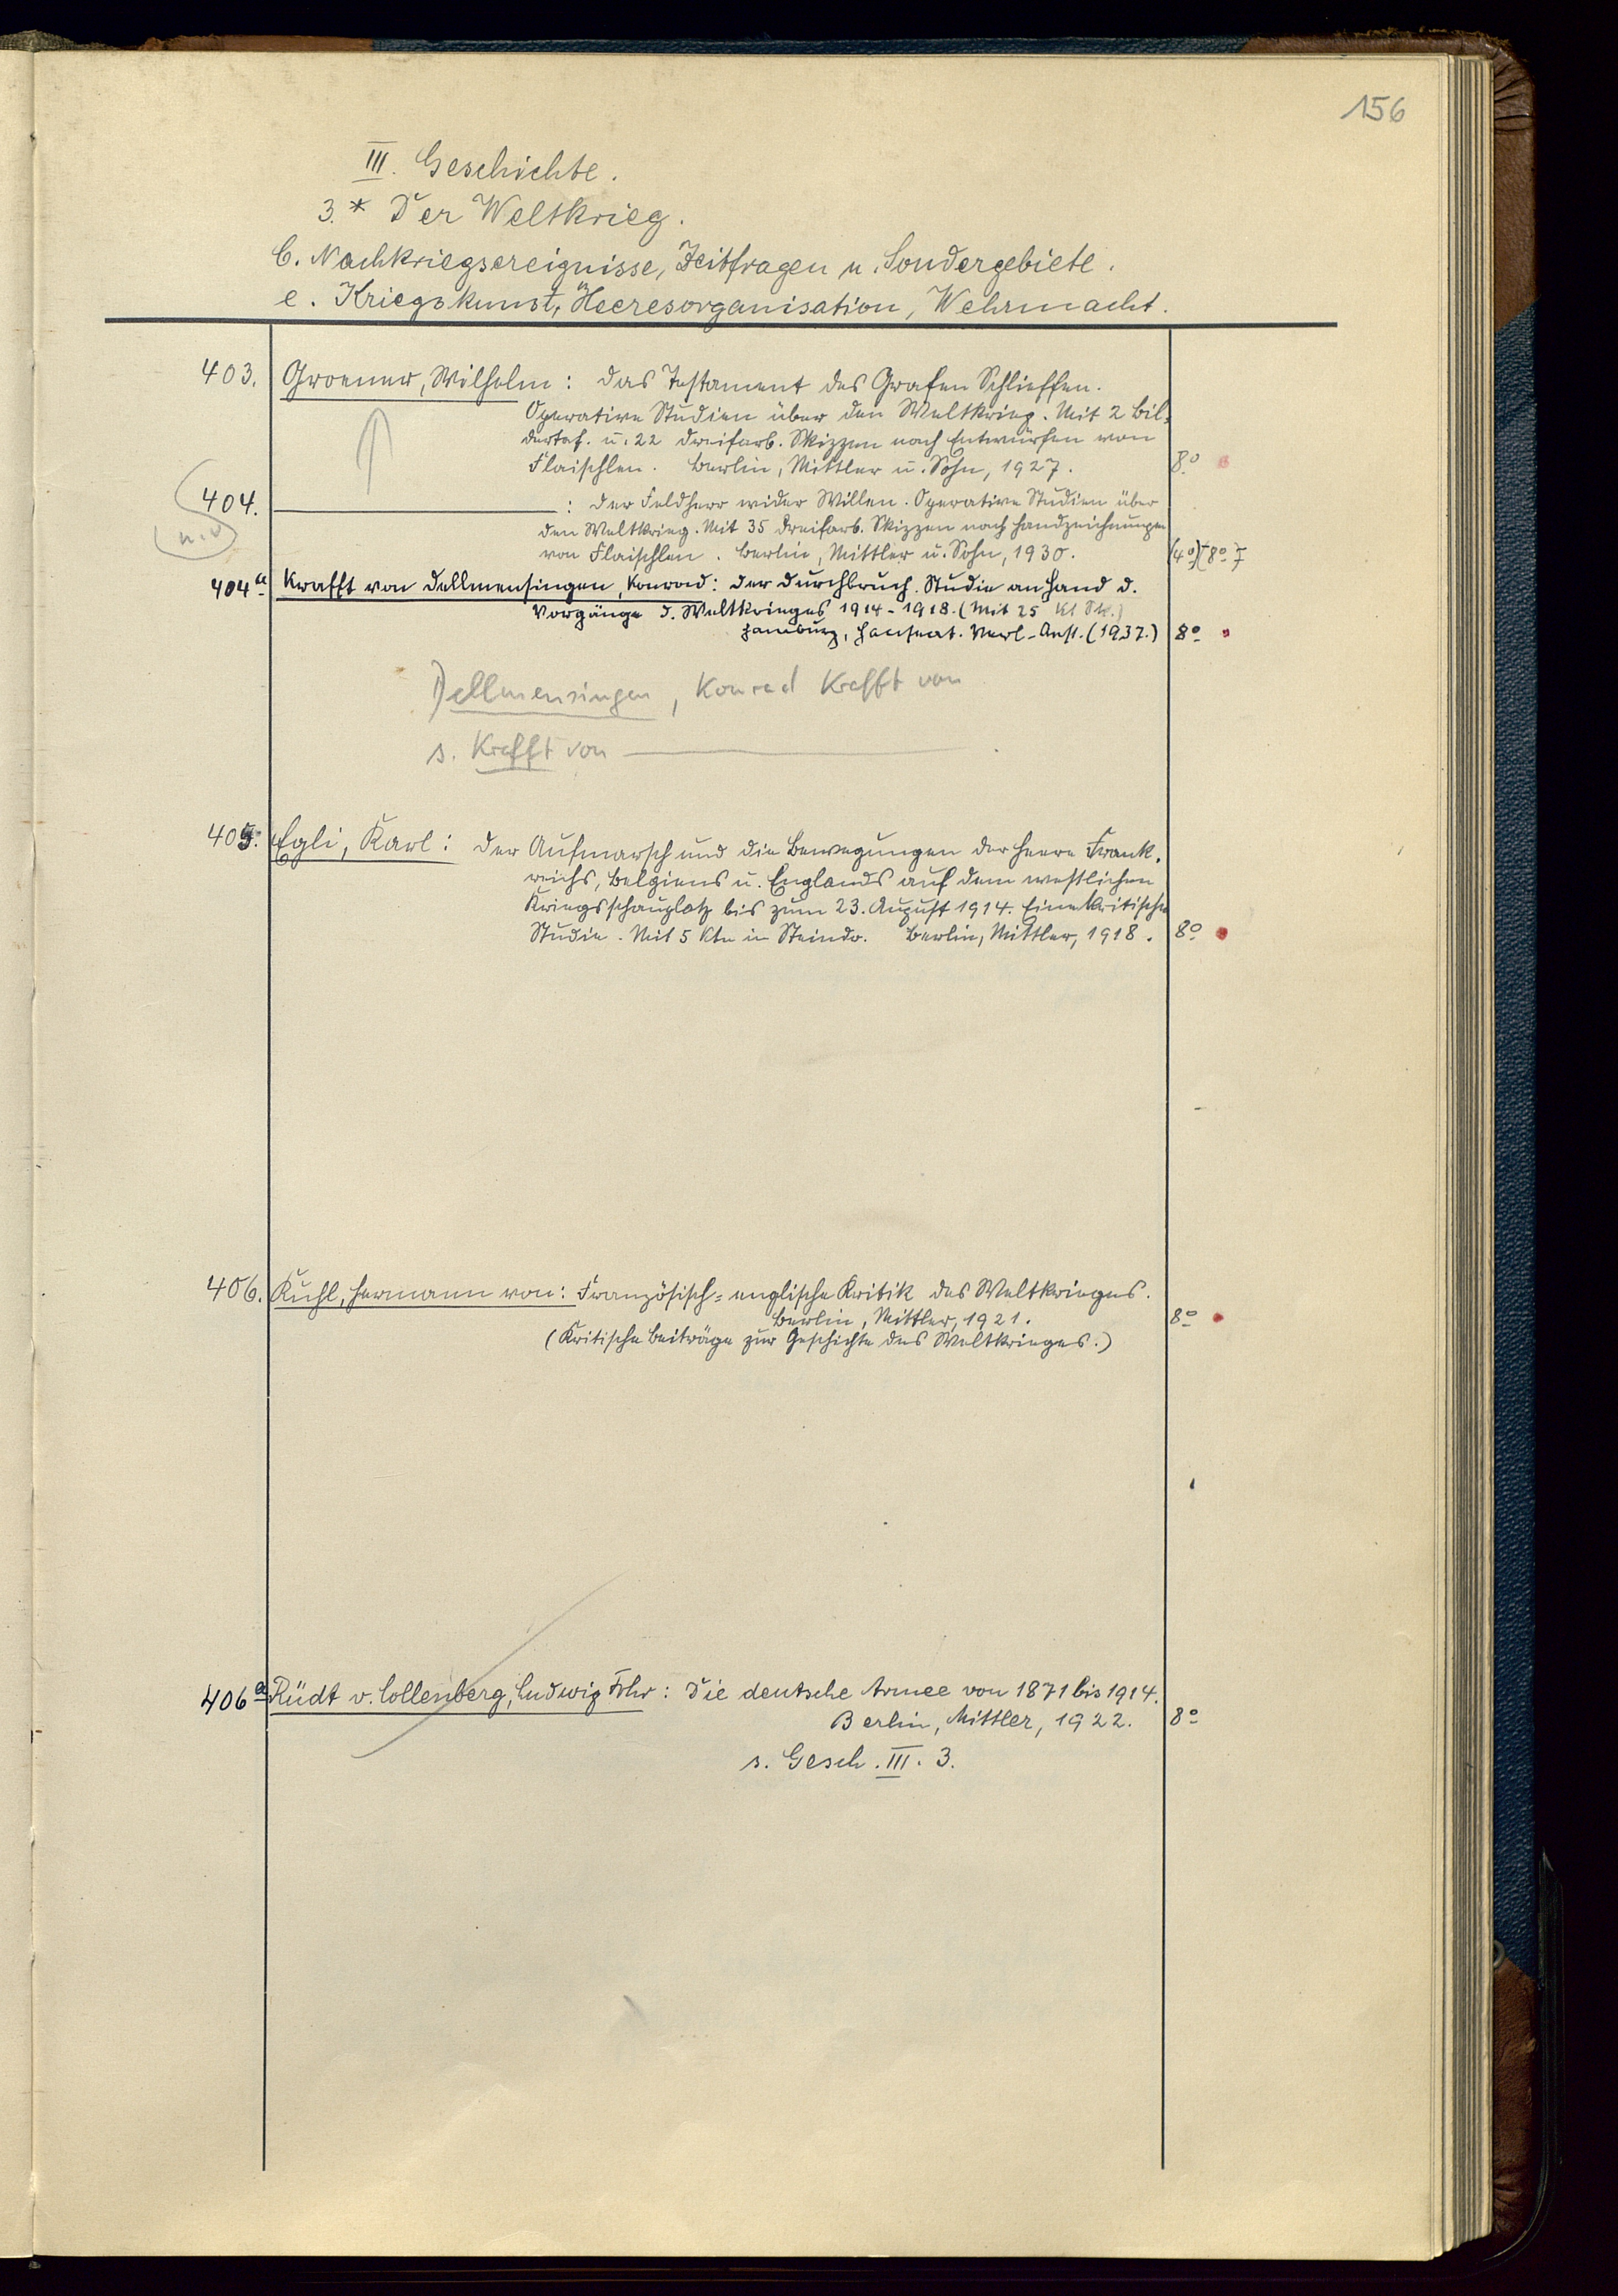 156
III. Geschichte.
3.* Der Weltkrieg.
C. Nachkriegsereignisse, Zeitfragen u. Sondergebiete.
e. Kriegskunst, Heeresorganisation, Wehrmacht.
403. Groener, Wilhelm: Das Testament des Grafen Schlieffen.
Operative Studien über den Weltkrieg. Mit 2 Bil-
dertaf. u. 22 dreifarb. Skizzen nach Entwürfen von
Flaischlen. Berlin, Mittler u. Sohn, 1927. 8.o
404. ———: Der Feldherr wider Willen. Operative Studien über
den Weltkrieg. Mit 35 dreifarb. Skizzen nach Handzeichnungen
von Flaischlen. Berlin, Mittler u. Sohn, 1930. (4o) [8o]
404a Krafft von Dellmensingen, Konrad: Der Durchbruch. Studie an Hand d.
Vorgänge d. Weltkrieges 1914-1918. (Mit 25 Kt Sk.)
Hamburg, Hanseat. Verl.-Anst. (1937.) 8o
Dellmensingen, Konrad Krafft von
s. Krafft von ———
405. Egli, Karl: Der Aufmarsch und die Bewegungen der Heere Frank-
reichs, Belgiens u. Englands auf dem westlichen
Kriegsschauplatz bis zum 23. August 1914. Eine kritische
Studie. Mit 5 Ktn in Steindr. Berlin, Mittler, 1918. 8o
406. Kuhl, Hermann von: Französisch-englische Kritik des Weltkrieges.
Berlin, Mittler, 1921. 8o
(Kritische Beiträge zur Geschichte des Weltkrieges.)
406a Rüdt v. Collenberg, Ludwig Frhr: Die deutsche Armee von 1871 bis 1914.
Berlin, Mittler, 1922. 8o
s. Gesch. III. 3.